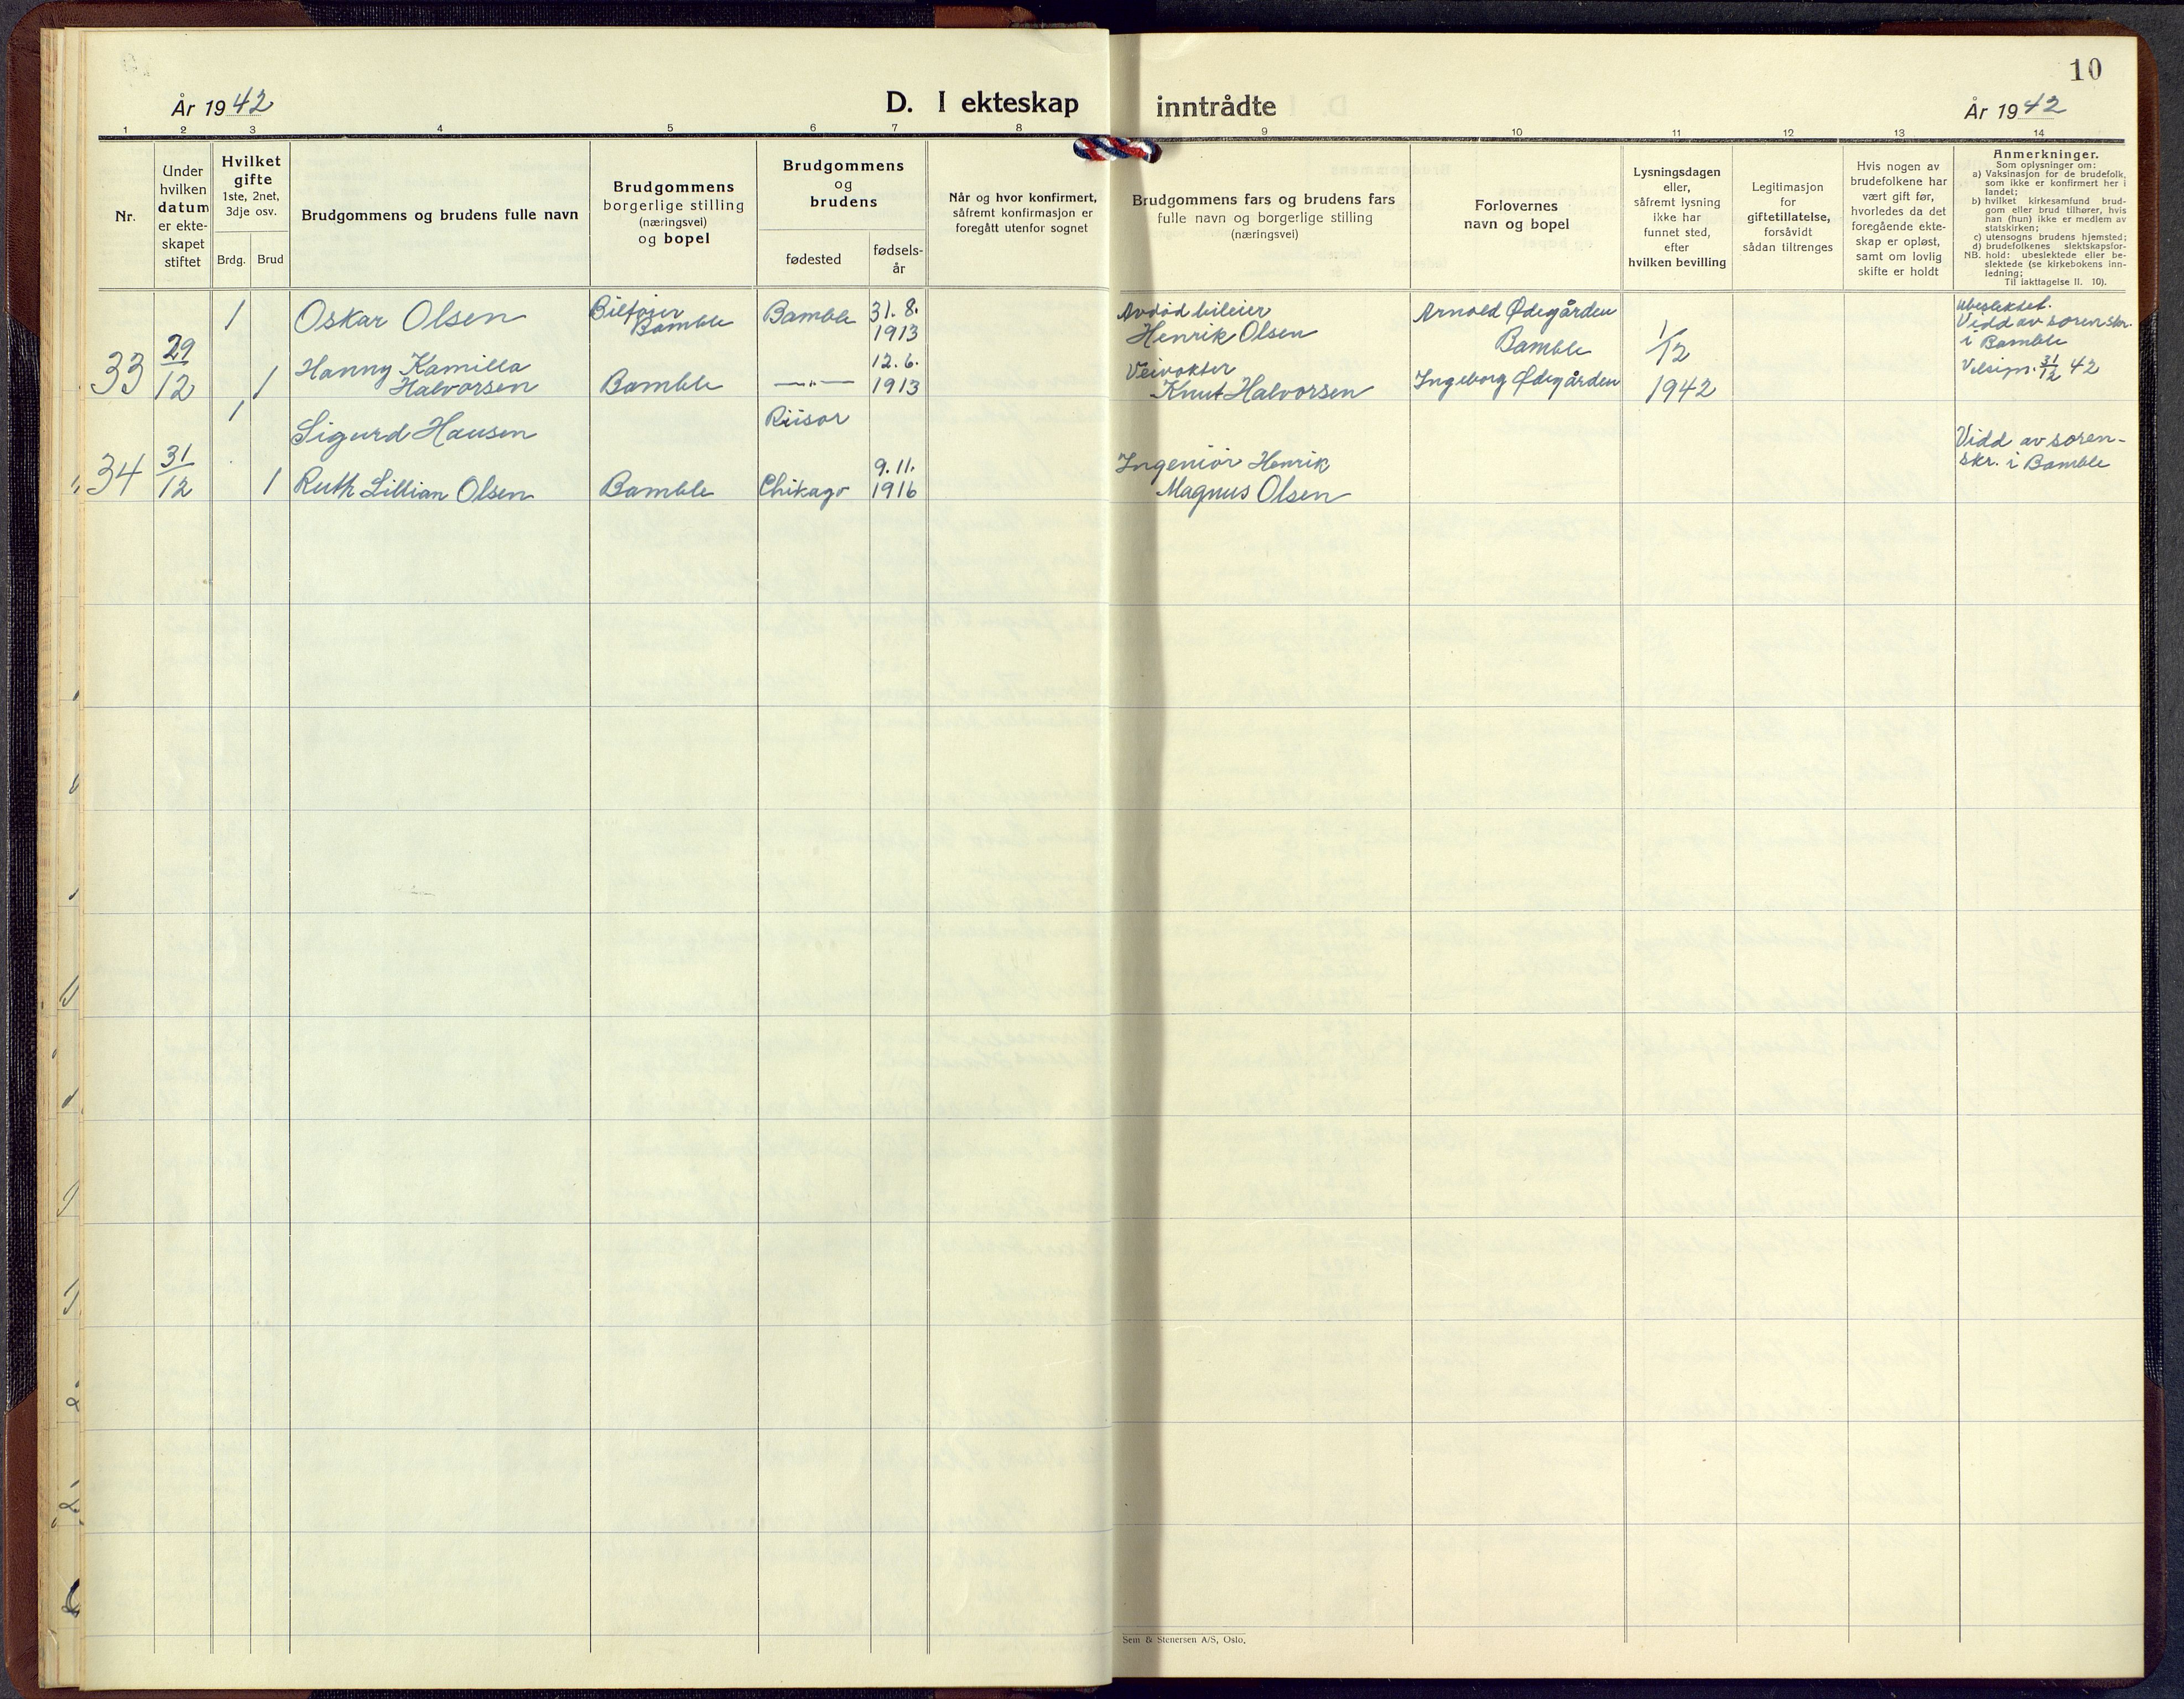 10
År 1942
D. I ekteskap inntrådte
År 1942
1 2 3 4 5 6 7 8 9 10 11 12 13 14
Nr.
Under
hvilken
datum
er ekte-
skapet
stiftet
Hvilket
gifte
1ste, 2net,
3dje osv.
Brdg.
Brud
Brudgommens og brudens fulle navn
Brudgommens
borgerlige stilling
(næringsvei)
og bopel
Brudgommens
og
brudens
fødested
fødsels-
år
Når og hvor konfirmert,
såfremt konfirmasjon er
foregått utenfor sognet
Brudgommens fars og brudens fars
fulle navn og borgerlige stilling
(næringsvei)
Forlovernes
navn og bopel
Lysningsdagen
eller,
såfremt lysning
ikke har
funnet sted,
efter
hvilken bevilling
Legitimasjon
for
giftetillatelse,
forsåvidt
sådan tiltrenges
Hvis nogen av
brudefolkene har
vært gift før,
hvorledes da det
foregående ekte-
skap er opløst,
samt om lovlig
skifte er holdt
Anmerkninger.
Som oplysninger om:
a) Vaksinasjon for de brudefolk,
som ikke er konfirmert her i
landet;
b) hvilket kirkesamfund brud-
gom eller brud tilhører, hvis
han (hun) ikke er medlem av
statskirken;
c) utensogns brudens hjemsted;
d) brudefolkenes slektskapsfor-
NB. hold: ubeslektede eller be-
slektede (se kirkebokens inn-
ledning;
Til iakttagelse II. 10).
33
29/12
1
Oskar Olsen
Bilfører
Bamble
Bamble
31.8.
1913
Avdød bileier
Henrik Olsen
Arnold Ødegården
Bamble
1/12
1942
ubeslektet.
Vidd av soren skr.
i Bamble
Velsign. 31/12 42
1
Hanny Kamilla
Halvorsen
Bamble
—"—
12.6.
1913
Veivokter
Knut Halvorsen
Ingeborg Ødegården
34
31/12
1
Sigurd Hansen
Riisør
Vidd av soren-
skr. i Bamble
1
Ruth Lillian Olsen
Bamble
Chikago
9.11.
1916
Ingeniør Henrik
Magnus Olsen
Sem & Stenersen A/S, Oslo.